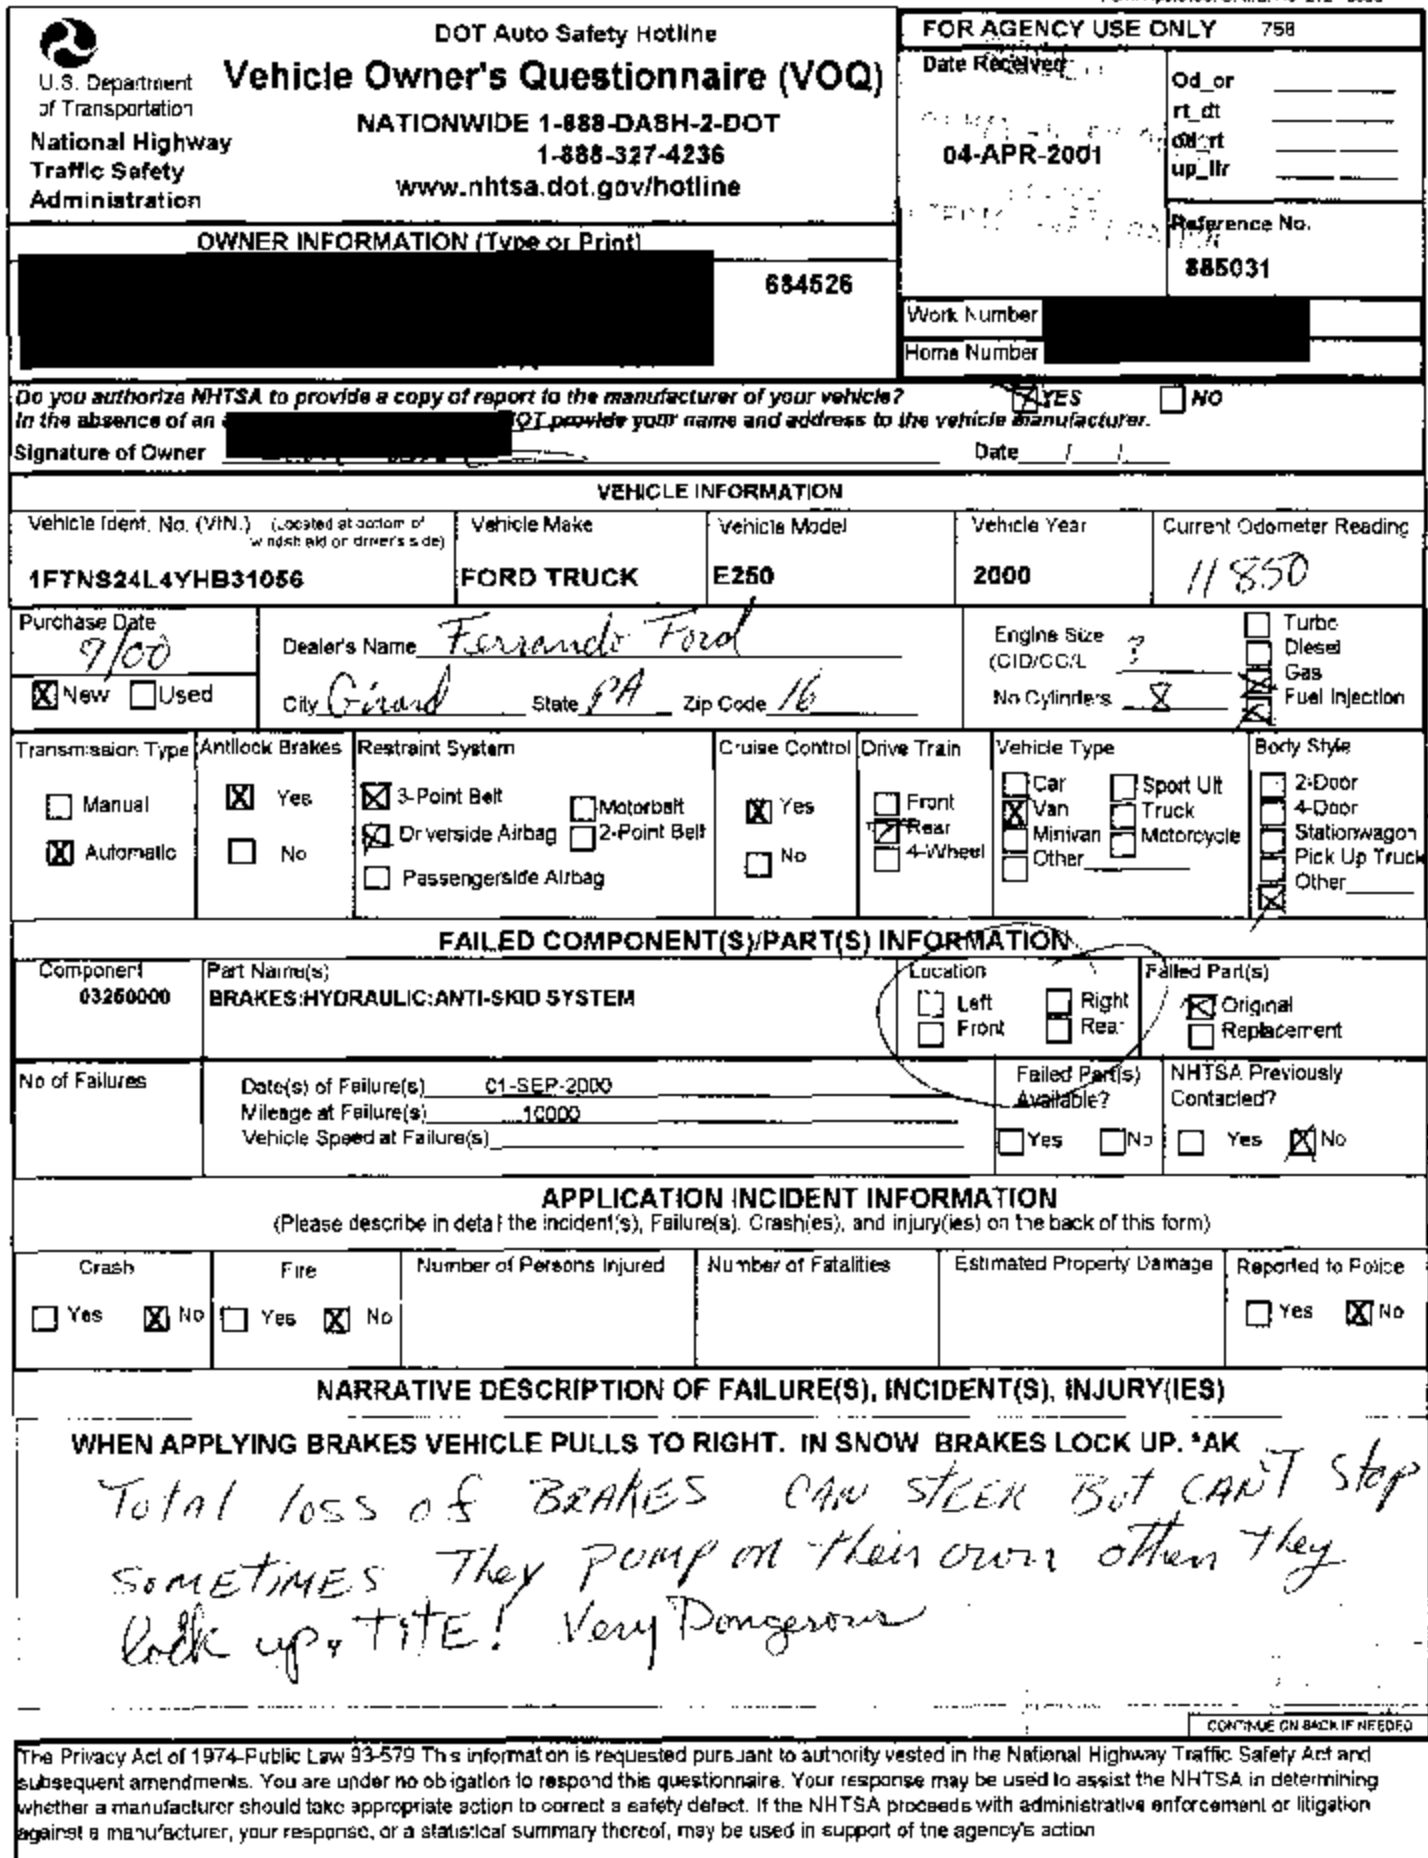 DOT Auto Safety Hotline
Vehicle Owner's Questionnaire (VOQ)
NATIONWIDE 1-888-DASH-2-DOT
1-888-327-4236
www.nhtsa.dot.gov/hotline
U.S. Department
of Transportation
National Highway
Traffic Safety
Administration
FOR AGENCY USE ONLY 758
Date Received
04-APR-2001
Od_or
rt_dt
od_rt
up_ltr
Reference No.
885031
OWNER INFORMATION (Type or Print)
684526
Work Number
Home Number
Do you authorize NHTSA to provide a copy of report to the manufacturer of your vehicle? YES NO
In the absence of an provide your name and address to the vehicle manufacturer.
Signature of Owner Date / /
VEHICLE INFORMATION
Vehicle Ident. No. (VIN.) (Located at bottom of
windshield on driver's side)
1FTNS24L4YHB31056
Vehicle Make
FORD TRUCK
Vehicle Model
E250
Vehicle Year
2000
Current Odometer Reading
11850
Purchase Date
9/00
New Used
Dealer's Name Ferrando Ford
City Girard State PA Zip Code 16
Engine Size
(CID/CC/L ?
No Cylinders 8
Turbo
Diesel
Gas
Fuel Injection
Transmission Type
Manual
Automatic
Antilock Brakes
Yes
No
Restraint System
3-Point Belt Motorbelt
Driverside Airbag 2-Point Belt
Passengerside Airbag
Cruise Control
Yes
No
Drive Train
Front
Rear
4-Wheel
Vehicle Type
Car Sport Ult
Van Truck
Minivan Motorcycle
Other
Body Style
2-Door
4-Door
Stationwagon
Pick Up Truck
Other
FAILED COMPONENT(S)/PART(S) INFORMATION
Component
03250000
Part Name(s)
BRAKES:HYDRAULIC:ANTI-SKID SYSTEM
Location
Left Right
Front Rear
Failed Part(s)
Original
Replacement
No of Failures
Date(s) of Failure(s) 01-SEP-2000
Mileage at Failure(s) 10000
Vehicle Speed at Failure(s)
Failed Part(s)
Available?
Yes No
NHTSA Previously
Contacted?
Yes No
APPLICATION INCIDENT INFORMATION
(Please describe in detail the incident(s), Failure(s), Crash(es), and injury(ies) on the back of this form)
Crash
Yes No
Fire
Yes No
Number of Persons Injured
Number of Fatalities
Estimated Property Damage
Reported to Police
Yes No
NARRATIVE DESCRIPTION OF FAILURE(S), INCIDENT(S), INJURY(IES)
WHEN APPLYING BRAKES VEHICLE PULLS TO RIGHT. IN SNOW BRAKES LOCK UP. *AK
Total loss of BRAKES CAN STEER But CAN'T Stop
SOMETIMES They PUMP on their own often they
lock up, TITE! Very Dangerous
CONTINUE ON BACK IF NEEDED
The Privacy Act of 1974-Public Law 93-579 This information is requested pursuant to authority vested in the National Highway Traffic Safety Act and
subsequent amendments. You are under no obligation to respond this questionnaire. Your response may be used to assist the NHTSA in determining
whether a manufacturer should take appropriate action to correct a safety defect. If the NHTSA proceeds with administrative enforcement or litigation
against a manufacturer, your response, or a statistical summary thereof, may be used in support of the agency's action